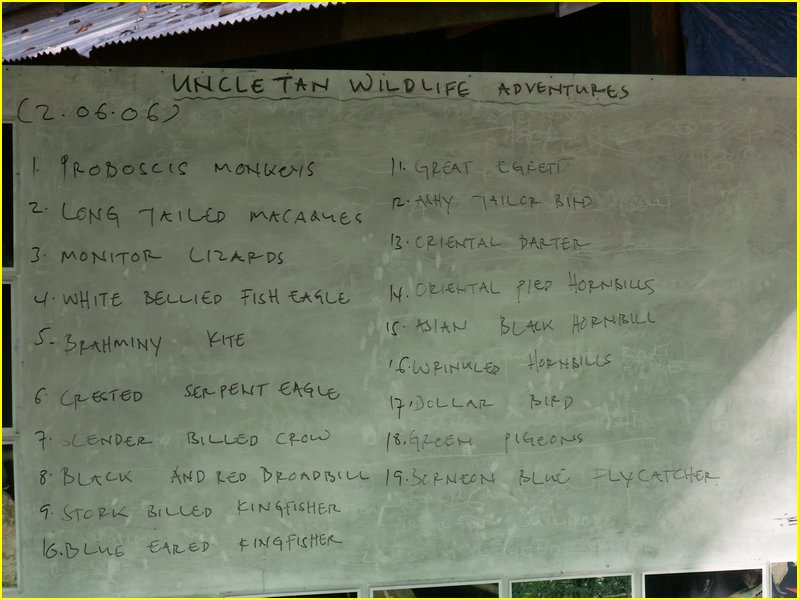 UNCLE TAN WILDLIFE ADVENTURES
(2.06.06)
1. PROBOSCIS MONKEYS
2. LONG TAILED MACAQUES
3. MONITOR LIZARDS
4. WHITE BELLIED FISH EAGLE
5. BRAHMINY KITE
6. CRESTED SERPENT EAGLE
7. SLENDER BILLED CROW
8. BLACK AND RED BROADBILL
9. STORK BILLED KINGFISHER
10. BLUE EARED KINGFISHER
11. GREAT EGRETT
12. ASHY TAILOR BIRD
13. ORIENTAL DARTER
14. ORIENTAL PIED HORNBILLS
15. ASIAN BLACK HORNBILL
16. WRINKLED HORNBILLS
17. DOLLAR BIRD
18. GREEN PIGEONS
19. BORNEON BLUE FLYCATCHER